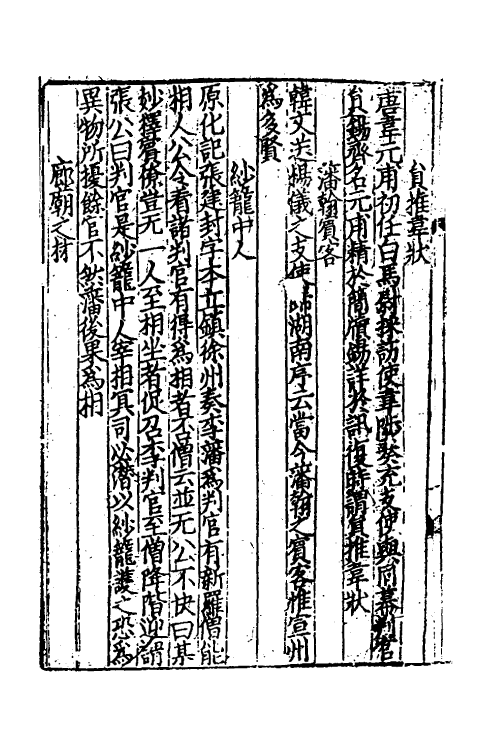 貟推韋狀
唐韋元甫初任白馬尉採訪使韋陟奏充支使與同幕判官
貟錫齊名元甫精於簡牘錫詳於訊復時謂貟推韋狀
藩翰賓客
韓文送楊儀之支使歸湖南序云當今藩翰之賓客惟宣州
爲多賢
紗籠中人
原化記張建封字本立鎮徐州奏李藩爲判官有新羅僧能
相人公令看諸判官有得爲相者否僧云並无公不快曰某
妙擇賓僚豈无一人至相坐者促召李判官至僧降階迎謂
張公曰判官是紗籠中人宰相冥司必潜以紗籠護之恐爲
異物所擾餘官不然藩後果爲相
廊廟之材